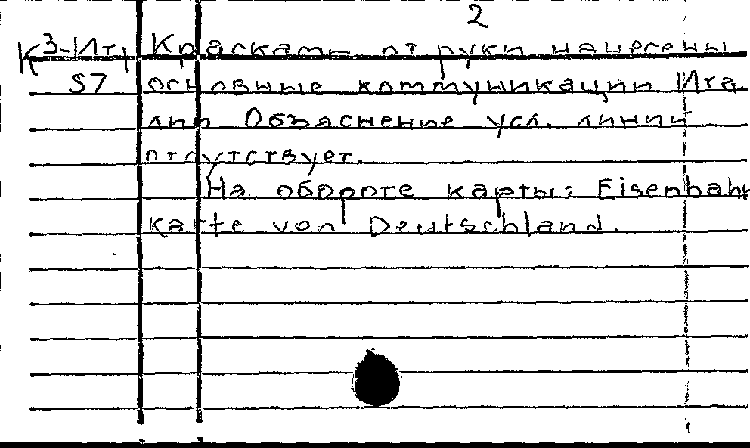 2
К3-Ит1 Красками от руки нанесены
57 основные коммуникации Ита
лии Объяснение усл. линий
отсутствует.
На обороте карты: Eisenbahn
karte von Deutschland.